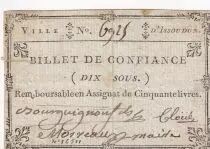 VILLE No. 6925 D'ISSOUDUN.
BILLET DE CONFIANCE
( DIX SOUS. )
Remboursable en Assignat de Cinquante livres.
Morreau maire